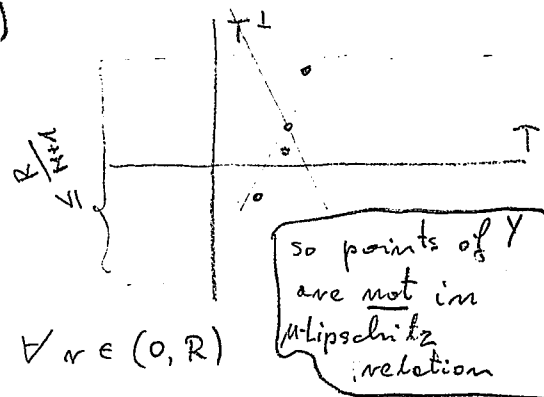 )
T⊥
T
R/M+1
≤
so points of Y
are not in
M-Lipschitz
relation
∀ r ∈ (0, R)